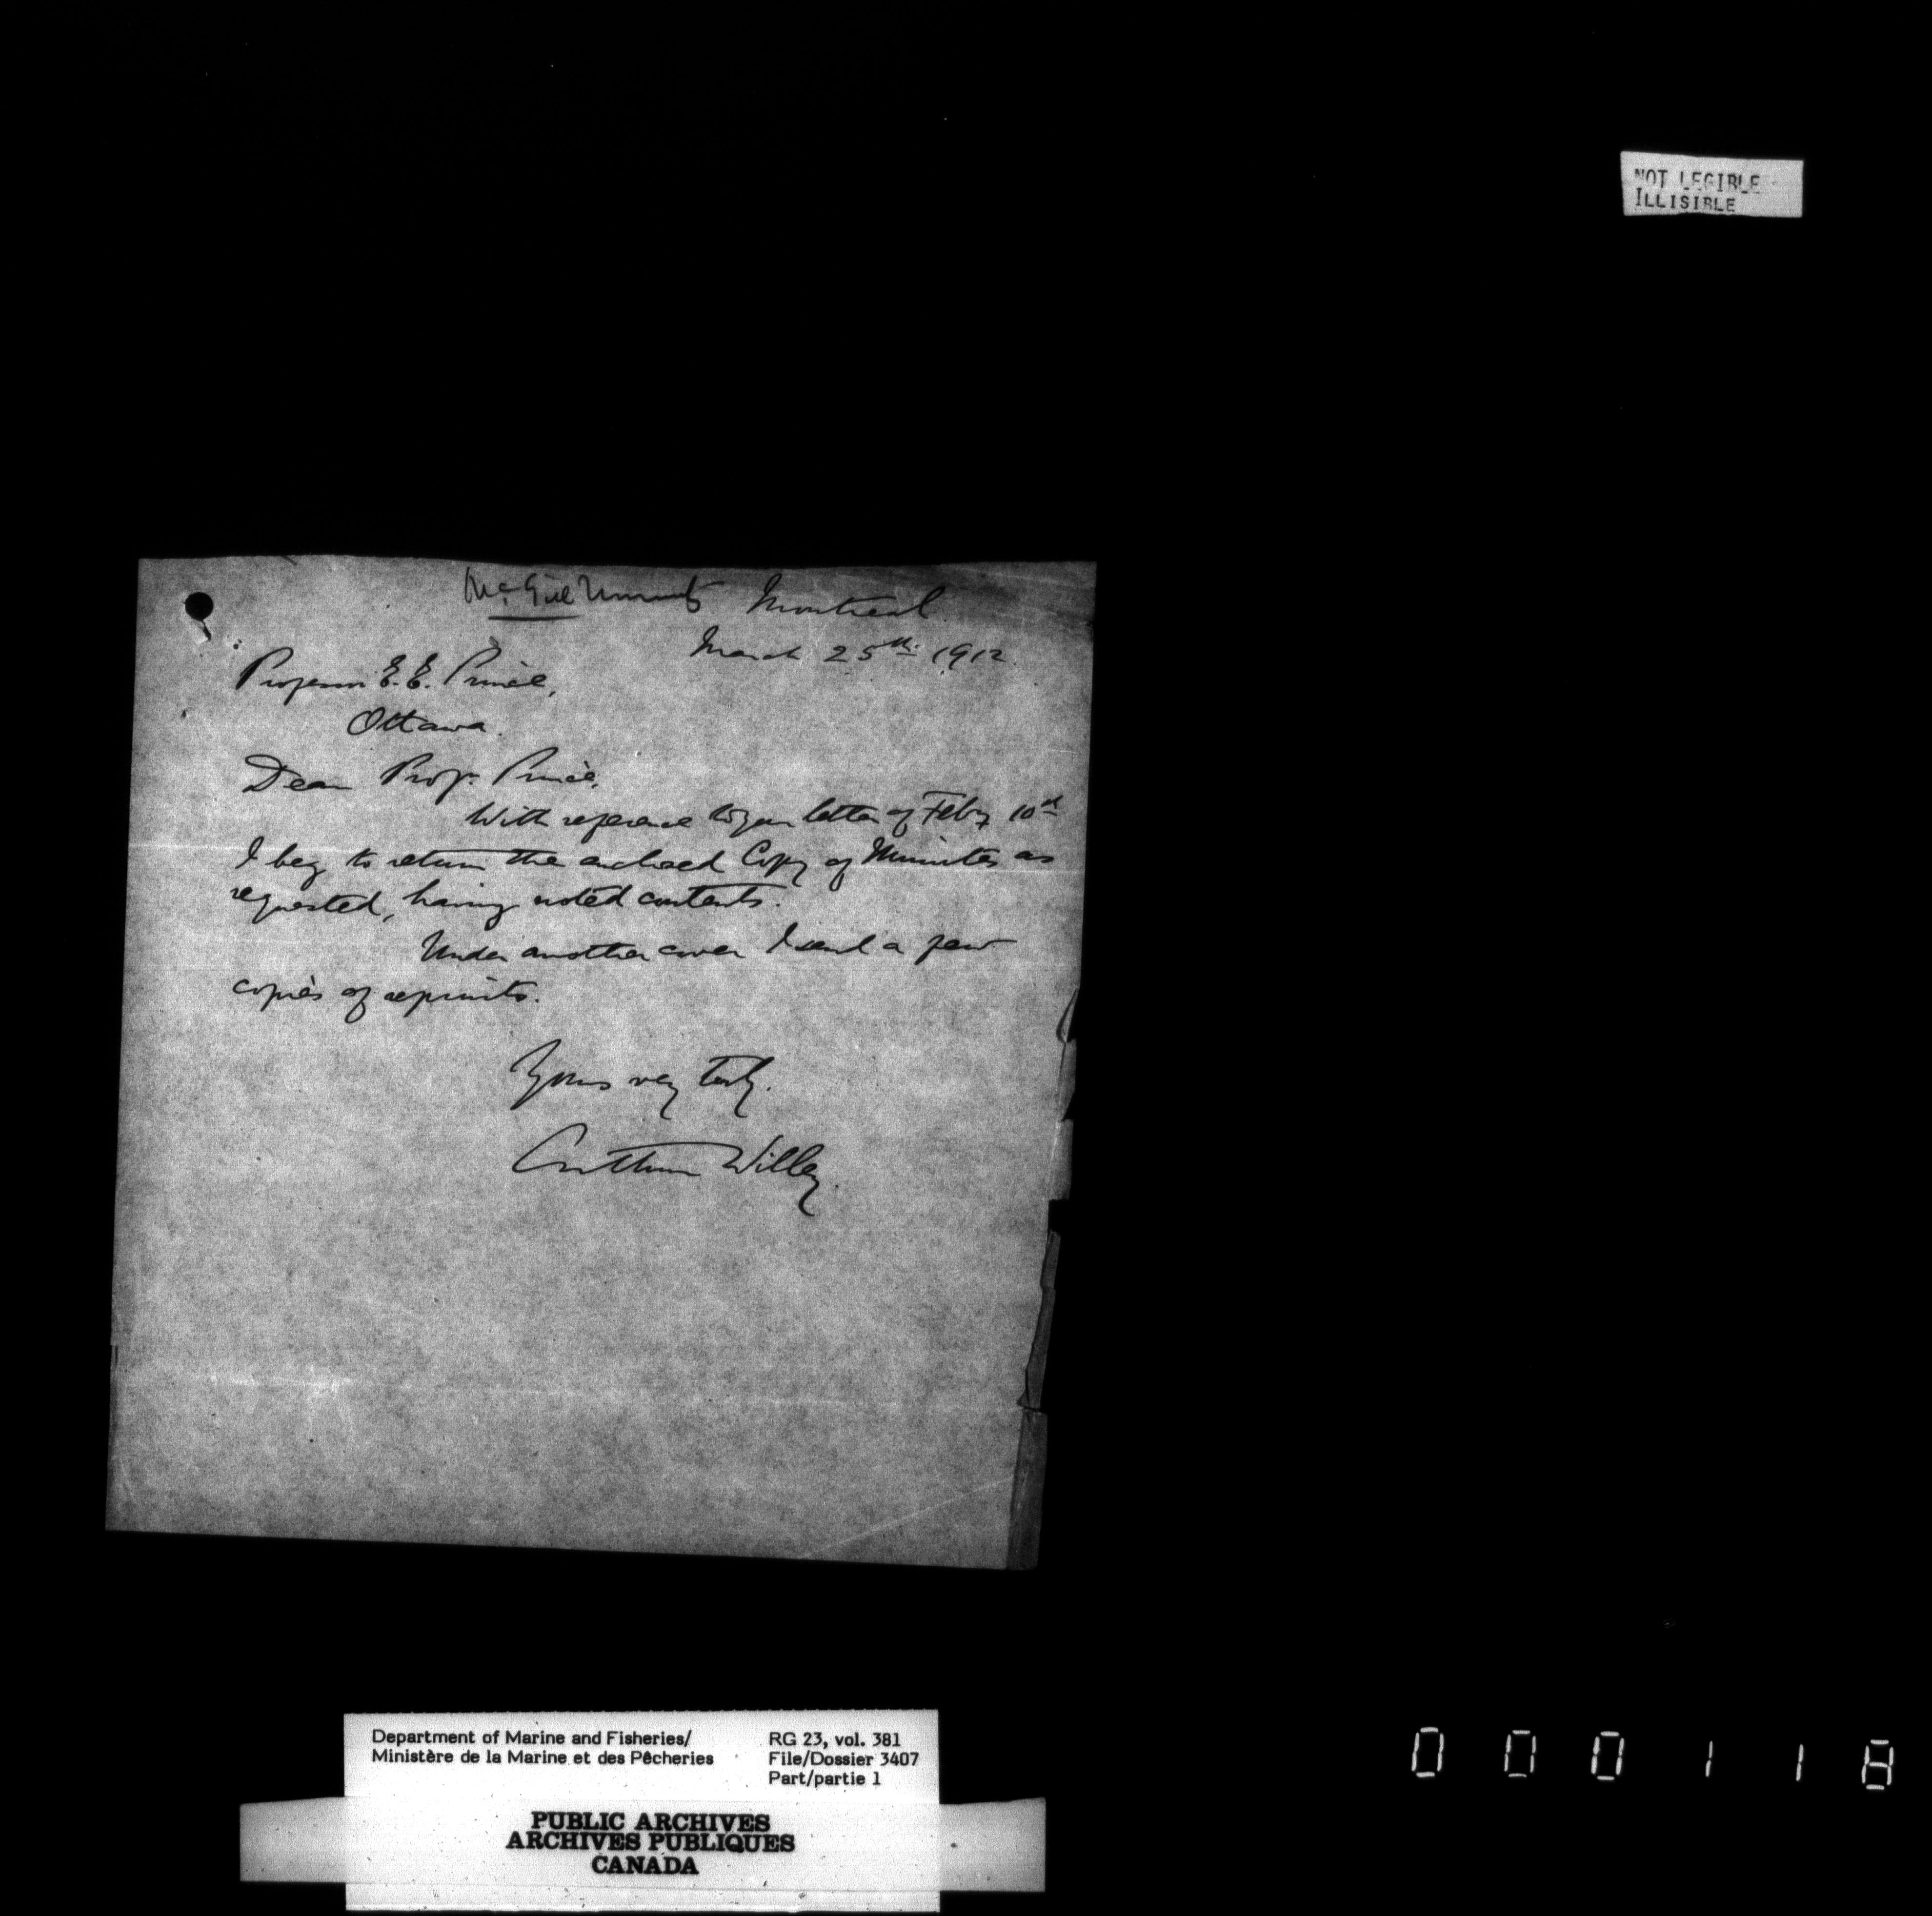 NOT LEGIBLE
ILLISIBLE
McGill University Montreal.
March 25th. 1912.
Professor E. E. Prince,
Ottawa.
Dear Profr. Prince,
With reference to your letter of Feby 10th
I beg to return the enclosed Copy of Minutes as
requested, having noted contents.
Under another cover I send a few
copies of reprints.
Yours very truly.
Arthur Willey.
Department of Marine and Fisheries/
Ministère de la Marine et des Pêcheries
RG 23, vol. 381
File/Dossier 3407
Part/partie 1
PUBLIC ARCHIVES
ARCHIVES PUBLIQUES
CANADA
000118